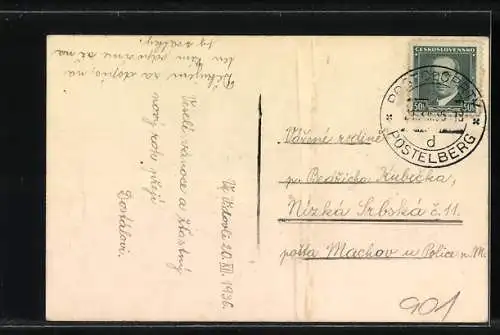 Děkujeme za dopis, na
ten Vám odpovíme až na
ty svátky.
Veselé vánoce a šťastný
nový rok přejí
Dostálovi.
20. XII. 1936.
ČESKOSLOVENSKO
50h 50h
POSTOLOPRTY
d
POSTELBERG
Vážené rodině
p. Bedřicha Kubečka,
Nízká Srbská č. 11.
pošta Machov u Police n. M.
901